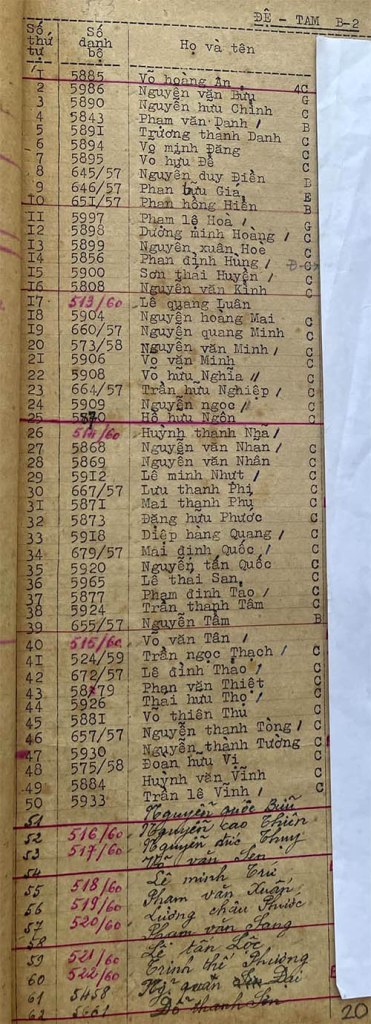 ĐỆ - TAM B-2
Số thứ tự Số danh bộ Họ và tên
I 5885 Võ hoàng Ân
2 5986 Nguyễn văn Bửu 4C
3 5890 Nguyễn hưu Chỉnh G
4 5843 Phạm văn Danh / C
5 589I Trương thành Danh B
6 5894 Võ minh Đăng C
7 5895 Võ hưu Đề C
8 645/57 Nguyễn duy Điền C
9 646/57 Phan hữu Giá B
I0 65I/57 Phan hồng Hiền E
II 5997 Phạm lê Hoà / B
I2 5898 Dương minh Hoàng / G
I3 5899 Nguyễn xuân Hoè C
I4 5856 Phan định Hùng / C
I5 5900 Sơn thái Huyền / C
I6 5808 Nguyễn văn Kỉnh C
I7 513/60 Lê quang Luân
I8 5904 Nguyễn hoàng Mai C
I9 660/57 Nguyễn quang Minh C
20 573/58 Nguyễn văn Minh / C
2I 5906 Võ văn Minh C
22 5908 Võ hưu Nghĩa // C
23 664/57 Trần hưu Nghiệp / C
24 5909 Nguyễn ngọc / C
25 5870 Hồ hưu Ngôn C
26 514/60 Huỳnh thanh Nhã /
27 5868 Nguyễn văn Nhan / C
28 5869 Nguyễn văn Nhân C
29 59I2 Lê minh Nhựt / C
30 667/57 Lưu thanh Phi C
3I 587I Mai thanh Phụ C
32 5873 Đặng hưu Phước C
33 59I8 Diệp hàng Quang / C
34 679/57 Mai định Quốc / C
35 5920 Nguyễn tấn Quốc C
36 5965 Lê thai San C
37 5877 Phạm đình Tao / C
38 5924 Trần thanh Tâm C
39 655/57 Nguyễn Tâm B
40 515/60 Võ văn Tân /
4I 524/59 Trần ngọc Thạch / C
42 672/57 Lê đình Thảo / C
43 5879 Phan văn Thiệt C
44 5926 Thai hưu Thọ / C
45 588I Võ thiên Thu C
46 657/57 Nguyễn thanh Tòng / C
47 5930 Nguyễn thanh Tường C
48 575/58 Đoạn hưu Vị C
49 5884 Huỳnh văn Vĩnh C
50 5933 Trần lê Vĩnh / C
51 Nguyễn quốc Bửu
52 516/60 Nguyễn cao Thiên
53 517/60 Nguyễn đức Thụy
54 văn Sen
55 518/60 Lê minh Trí
56 519/60 Phạm văn Xuân
57 520/60 Lương châu Phước
58 Phạm văn Sang
59 521/60 Lê tấn Lộc
60 522/60 Trịnh thế Phương
61 5458 quân Đài
62 Đỗ thanh Sơn
20